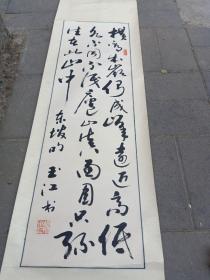 横看成岭侧成峰遠近高低
各不同不识廬山真面目只缘
身在此山中
东坡句
玉江书